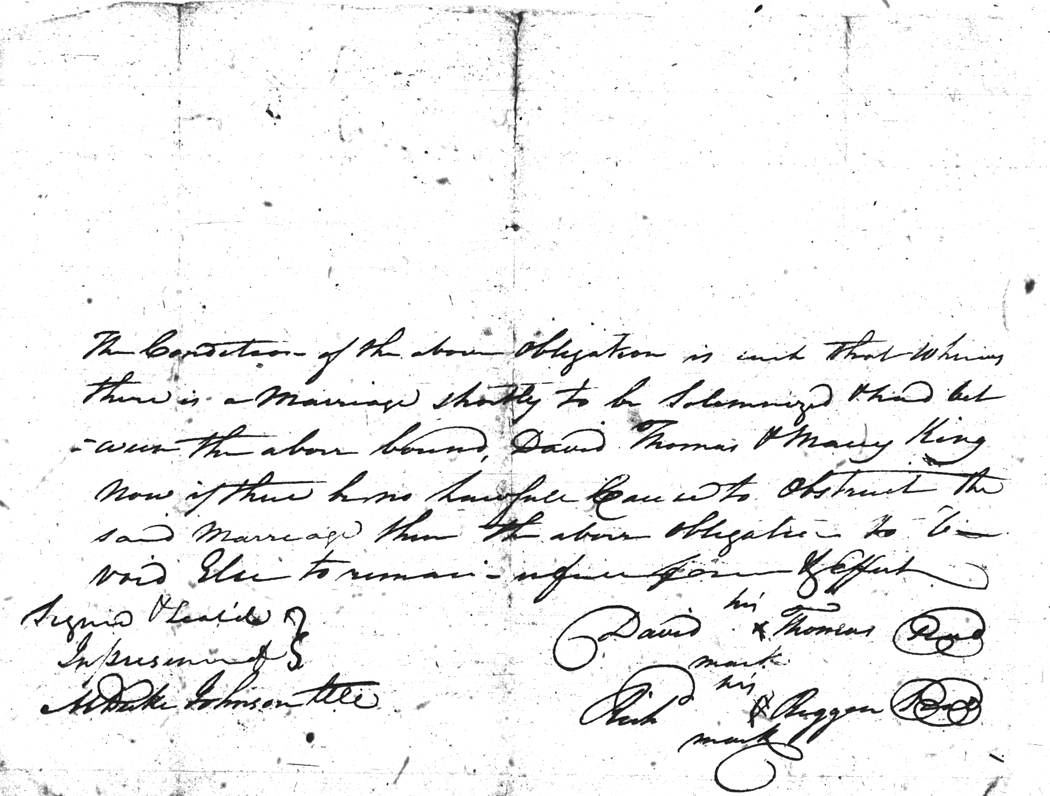 The Condition of the above obligation is such that whereas
there is a Marriage shortly to be Solemnized & had bet
-ween the above bound David Thomas & Marey King
Now if there be no Lawfull Cause to Obstruct the
said Marriage then the above obligation to be
void Else to remain in full force & Effect
Signed & Seal'd
In presence of
M Duke Johnson
David his x mark Thomas Seal
Richd his x mark Riggan Seal